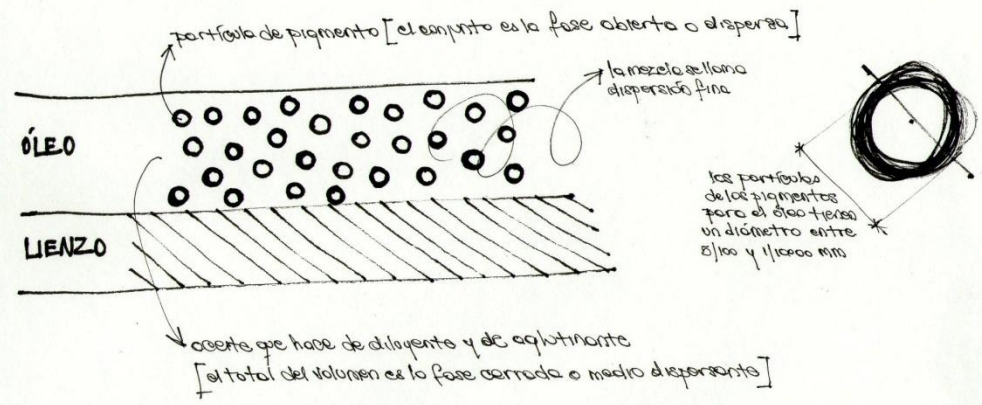 partícula de pigmento [el conjunto es la fase abierta o dispersa]
la mezcla se llama
dispersión fina
ÓLEO
LIENZO
las partículas
de los pigmentos
para el óleo tienen
un diámetro entre
5/100 y 1/10000 mm
aceite que hace de diluyente y de aglutinante
[el total del volumen es la fase cerrada o medio dispersante]